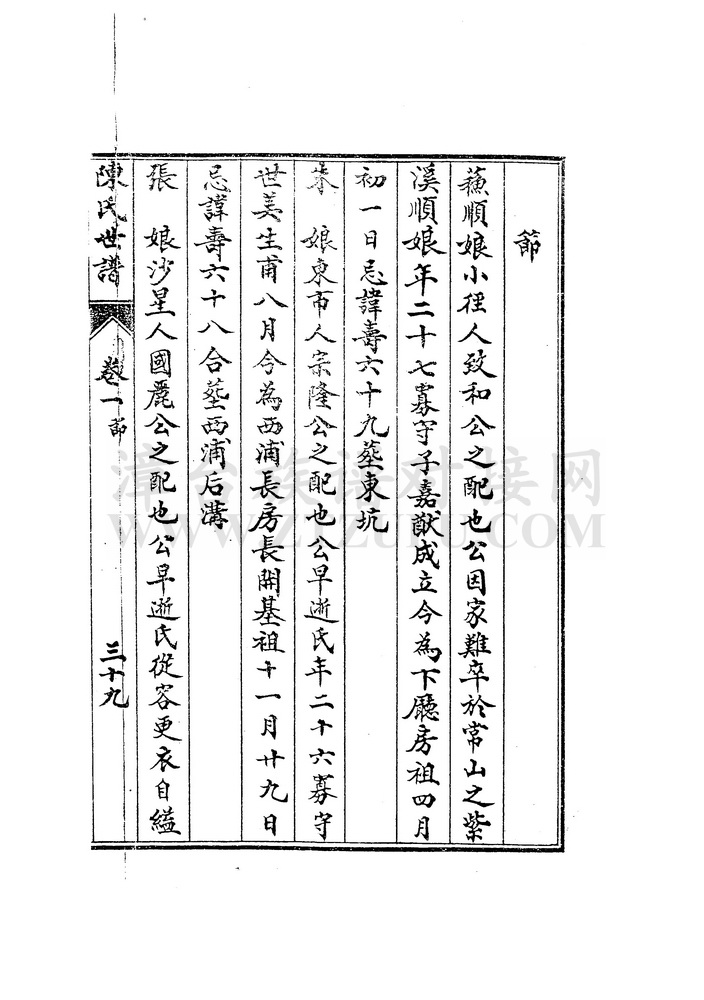 節
蘓順娘小徑人致和公之配也公因家難卒於常山之紫
溪順娘年二十七寡守子嘉猷成立今為下廳房祖四月
初一日忌諱壽六十九塟東坑
娘東市人宗隆公之配也公早逝氏年二十六寡守
世美生甫八月今為西浦長房長開基祖十一月廿九日
忌諱壽六十八合塟西浦后溝
張　娘沙星人國麗公之配也公早逝氏從容更衣自縊
陳氏世譜　卷一　節　三十九
漳台族谱对接网
WWW.ZTZUPU.COM